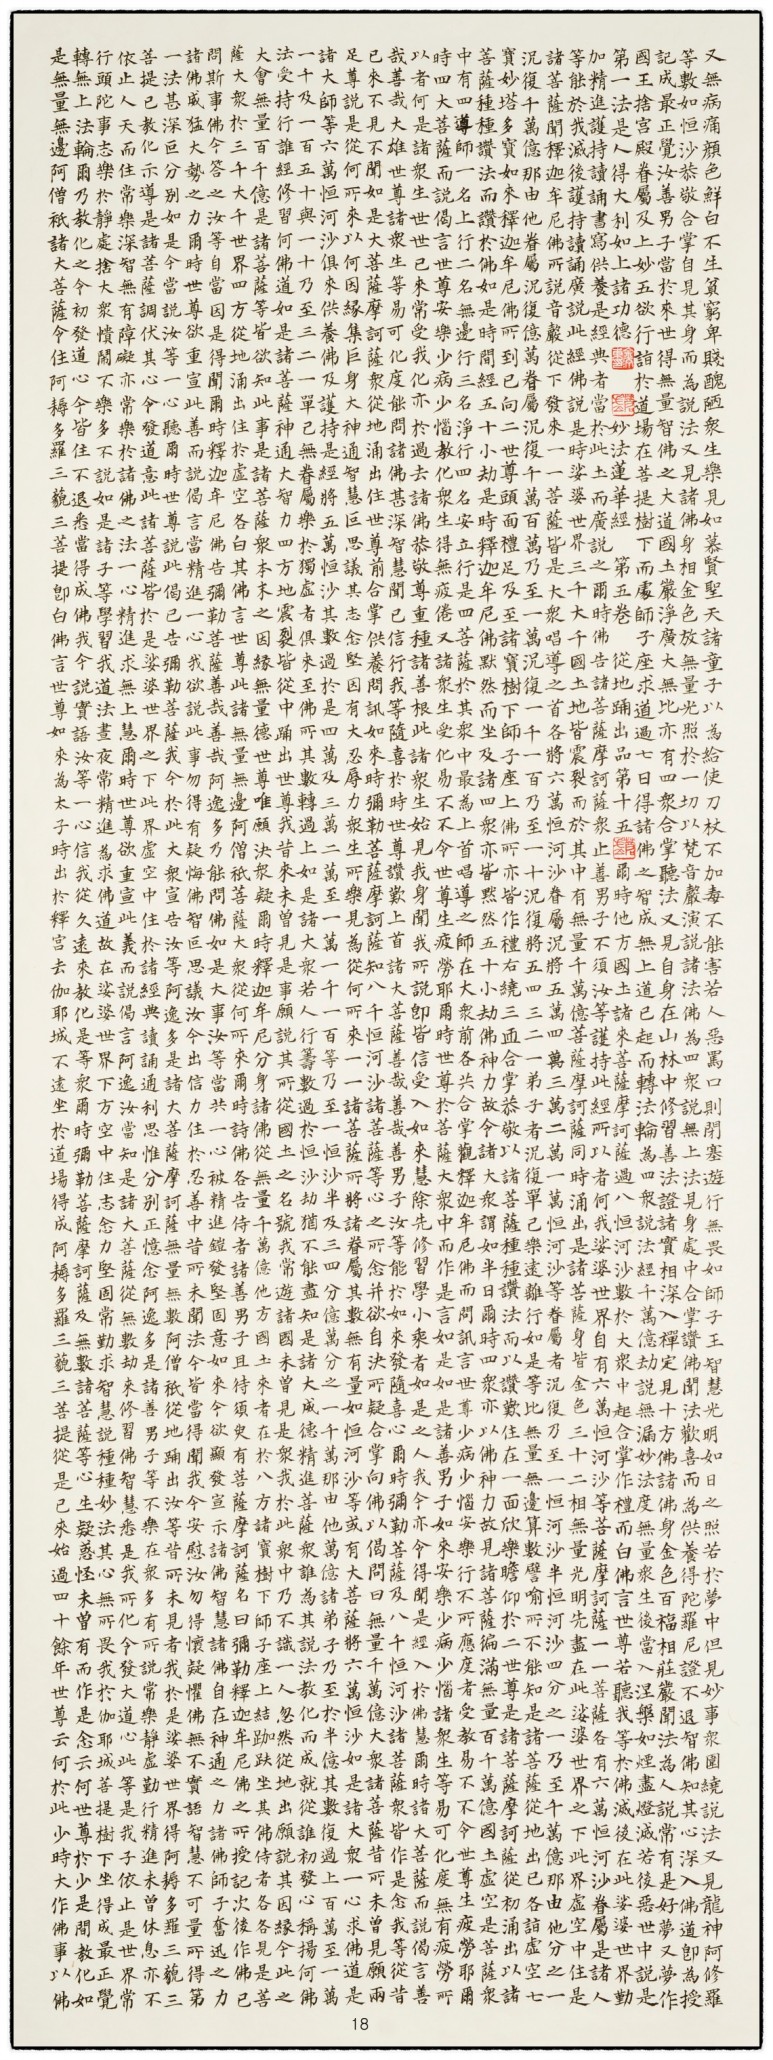 又無病痛顏色鮮白不生貧窮卑賤醜陋眾生樂見如慕賢聖天諸童子以為給使刀杖不加毒不能害若人惡罵口則閉塞遊行無畏如師子王智慧光明如日之照若於夢中但見妙事眾圍繞說法又見龍神阿修羅
等數如恒沙恭敬合掌自見其身而為說法又見諸佛身相金色放無量光照於一切以梵音聲演說諸法佛為四眾說無上法見身處中合掌讚佛聞法歡喜而為供養得陀羅尼證不退智佛知其心深入佛道即為授
記成最正覺汝善男子當於來世得無量智佛之大道國土嚴淨廣大無比亦有四眾合掌聽法又見自身在山林中修習善法證諸實相深入禪定見十方佛諸佛身金色百福相莊嚴聞法為人說常有是好夢又夢作
國王捨宮殿眷屬及上妙五欲行詣於道場在菩提樹下而處師子座求道過七日得諸佛之智成無上道已起而轉法輪為四眾說法經千萬億劫說無漏妙法度無量眾生後當入涅槃如煙盡燈滅若後惡世中說是
第一法是人得大利如上諸功德 妙法蓮華經 第五卷 從地踊出品第十五 爾時他方國土諸來菩薩摩訶薩過八恒河沙數於大眾中起合掌作禮而白佛言世尊若聽我等於佛滅後在此娑婆世界勤
加精進護持讀誦書寫供養是經典者當於此土而廣說之爾時佛告諸菩薩摩訶薩眾止善男子不須汝等護持此經所以者何我娑婆世界自有六萬恒河沙等菩薩摩訶薩一一菩薩各有六萬恒河沙眷屬是諸人
等能於我滅後護持讀誦廣說此經佛說是時娑婆世界三千大千國土地皆震裂而於其中有無量千萬億菩薩摩訶薩同時涌出是諸菩薩身皆金色三十二相無量光明先盡在此娑婆世界之下此界虛空中住是
諸菩薩聞釋迦牟尼佛所說音聲從下發來一一菩薩皆是大眾唱導之首各將六萬恒河沙眷屬況將五萬四萬三萬二萬一萬恒河沙等眷屬者況復乃至一恒河沙半恒河沙四分之一乃至千萬億那由他分之一
況復千萬億那由他眷屬況復億萬眷屬況復千萬百萬乃至一萬況復一千一百乃至一十況復將五四三二一弟子者況復單己樂遠離行如是等比無量無邊算數譬喻所不能知是諸菩薩從地出已各詣虛空七
寶妙塔多寶如來釋迦牟尼佛所到已向二世尊頭面禮足及至諸寶樹下師子座上佛所亦皆作禮右繞三匝合掌恭敬以諸菩薩種種讚法而以讚歎住在一面欣樂瞻仰於二世尊是諸菩薩摩訶薩從初涌出以諸
菩薩種種讚法而讚於佛如是時間經五十小劫是時釋迦牟尼佛默然而坐及諸四眾亦皆默然五十小劫佛神力故令諸大眾謂如半日爾時四眾亦以佛神力故見諸菩薩徧滿無量百千萬億國土虛空是菩薩眾
中有四導師一名上行二名無邊行三名淨行四名安立行是四菩薩於其眾中最為上首唱導之師在大眾前各共合掌觀釋迦牟尼佛而問訊言世尊少病少惱安樂行不所應度者受教易不不令世尊生疲勞耶爾
時四大菩薩而說偈言世尊安樂少病少惱教化眾生得無疲倦又諸眾生受化易不不令世尊生疲勞耶爾時世尊於菩薩大眾中而作是言如是如是諸善男子如來安樂少病少惱諸眾生等易可化度無有疲勞所
以者何是諸眾生世世已來常受我化亦於過去諸佛恭敬尊重種諸善根此諸眾生始見我身聞我所說即皆信受入如來慧除先修習學小乘者如是之人我今亦令得聞是經入於佛慧爾時諸大菩薩而說偈言善
哉善哉大雄世尊諸眾生等易可化度能問諸佛甚深智慧聞已信行我等隨喜於時世尊讚歎上首諸大菩薩善哉善哉善男子汝等能於如來發隨喜心爾時彌勒菩薩及八千恒河沙諸菩薩眾皆作是念我等從昔
已來不見不聞如是大菩薩摩訶薩眾從地涌出住世尊前合掌供養問訊如來時彌勒菩薩摩訶薩知八千恒河沙諸菩薩等心之所念并欲自決所疑合掌向佛以偈問曰無量千萬億大眾諸菩薩昔所未曾見願兩
足尊說是從何所來以何因緣集巨身大神通智慧叵思議其志念堅固有大忍辱力眾生所樂見為從何所來一一諸菩薩所將諸眷屬其數無有量如恒河沙等或有大菩薩將六萬恒沙如是諸大眾一心求佛道是
諸大師等六萬恒河沙俱來供養佛及護持是經將五萬恒沙其數過於是四萬及三萬二萬至一萬一千一百等乃至一恒沙半及三四分億萬分之一千萬那由他萬億諸弟子乃至於半億其數復過上百萬至一萬
一千及一百五十與一十乃至三二一單己無眷屬樂於獨處者俱來至佛所其數轉過上如是諸大眾若人行籌數過於恒沙劫猶不能盡知是諸大威德精進菩薩眾誰為其說法教化而成就從誰初發心稱揚何佛
法受持行誰經修習何佛道如是諸菩薩神通大智力四方地震裂皆從中踊出世尊我昔來未曾見是事願說其所從國土之名號我常遊諸國未曾見是眾我於此眾中乃不識一人忽然從地出願說其因緣今此之
大會無量百千億是諸菩薩等皆欲知此事是諸菩薩眾本末之因緣無量德世尊唯願決眾疑爾時釋迦牟尼分身諸佛從無量千萬億他方國土來者在於八方諸寶樹下師子座上結跏趺坐其佛侍者各各見是菩
薩大眾於三千大千世界四方從地涌出住於虛空各白其佛言世尊此諸無量無邊阿僧祇菩薩大眾從何所來爾時諸佛各告侍者諸善男子且待須臾有菩薩摩訶薩名曰彌勒釋迦牟尼佛之所授記次後作佛已
問斯事佛今答之汝等自當因是得聞爾時釋迦牟尼佛告彌勒菩薩善哉善哉阿逸多乃能問佛如是大事汝等當共一心被精進鎧發堅固意如來今欲顯發宣示諸佛智慧諸佛自在神通之力諸佛師子奮迅之力
諸佛威猛大勢之力爾時世尊欲重宣此義而說偈言當精進一心我欲說此事勿得有疑悔佛智叵思議汝今出信力住於忍善中昔所未聞法今皆當得聞我今安慰汝勿得懷疑懼佛無不實語智慧不可量所得第
一法甚深叵分別如是今當說汝等一心聽爾時世尊說此偈已告彌勒菩薩我今於此大眾宣告汝等阿逸多是諸大菩薩摩訶薩無量無數阿僧祇從地踊出汝等昔所未見者我於是娑婆世界得阿耨多羅三藐三
菩提已教化示導是諸菩薩調伏其心令發道意此諸菩薩皆於是娑婆世界之下此界虛空中住於諸經典讀誦通利思惟分別正憶念阿逸多是諸善男子等不樂在眾多有所說常樂靜處勤行精進未曾休息亦不
依止人天而住常樂深智無有障礙亦常樂於諸佛之法一心精進求無上慧爾時世尊欲重宣此義而說偈言阿逸汝當知是諸大菩薩從無數劫來修習佛智慧悉是我所化令發大道心此等是我子依止是世界常
行頭陀事志樂於靜處捨大眾憒鬧不樂多所說如是諸子等學習我道法晝夜常精進為求佛道故在娑婆世界下方空中住志念力堅固常勤求智慧說種種妙法其心無所畏我於伽耶城菩提樹下坐得成最正覺
轉無上法輪爾乃教化之令初發道心今皆住不退悉當得成佛我今說實語汝等一心信我從久遠來教化是等眾爾時彌勒菩薩摩訶薩及無數諸菩薩等心生疑惑怪未曾有而作是念云何世尊於少時間教化如
是無量無邊阿僧祇諸大菩薩令住阿耨多羅三藐三菩提即白佛言世尊如來為太子時出於釋宮去伽耶城不遠坐於道場得成阿耨多羅三藐三菩提從是已來始過四十餘年世尊云何於此少時大作佛事以佛
18